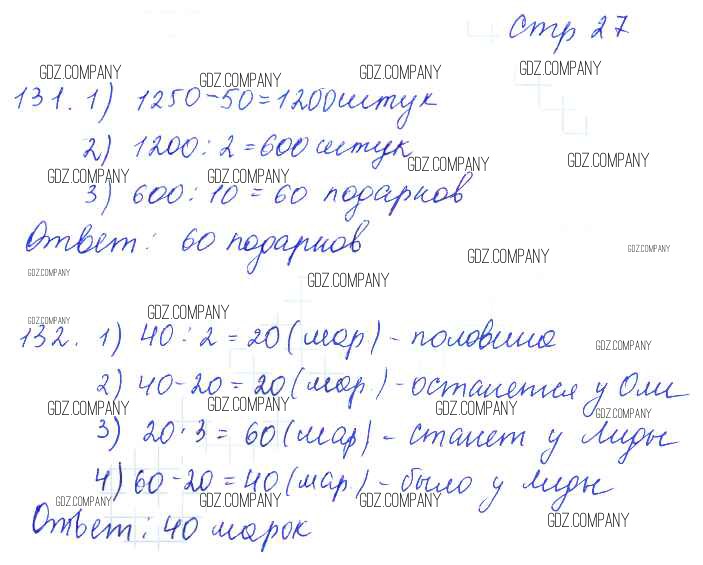 Стр 27
GDZ.COMPANY GDZ.COMPANY GDZ.COMPANY GDZ.COMPANY
131. 1) 1250-50=1200штук
2) 1200:2=600штук
GDZ.COMPANY GDZ.COMPANY GDZ.COMPANY GDZ.COMPANY
3) 600:10=60 подарков
Ответ: 60 подарков
GDZ.COMPANY GDZ.COMPANY
GDZ.COMPANY GDZ.COMPANY
GDZ.COMPANY GDZ.COMPANY
132. 1) 40:2=20(мар)-половина
GDZ.COMPANY
2) 40-20=20(мар.)-останется у Оли
GDZ.COMPANY GDZ.COMPANY GDZ.COMPANY GDZ.COMPANY
3) 20·3=60(мар)-станет у Лиды
4) 60-20=40(мар)-было у Лиды
GDZ.COMPANY GDZ.COMPANY GDZ.COMPANY
Ответ: 40 марок
GDZ.COMPANY